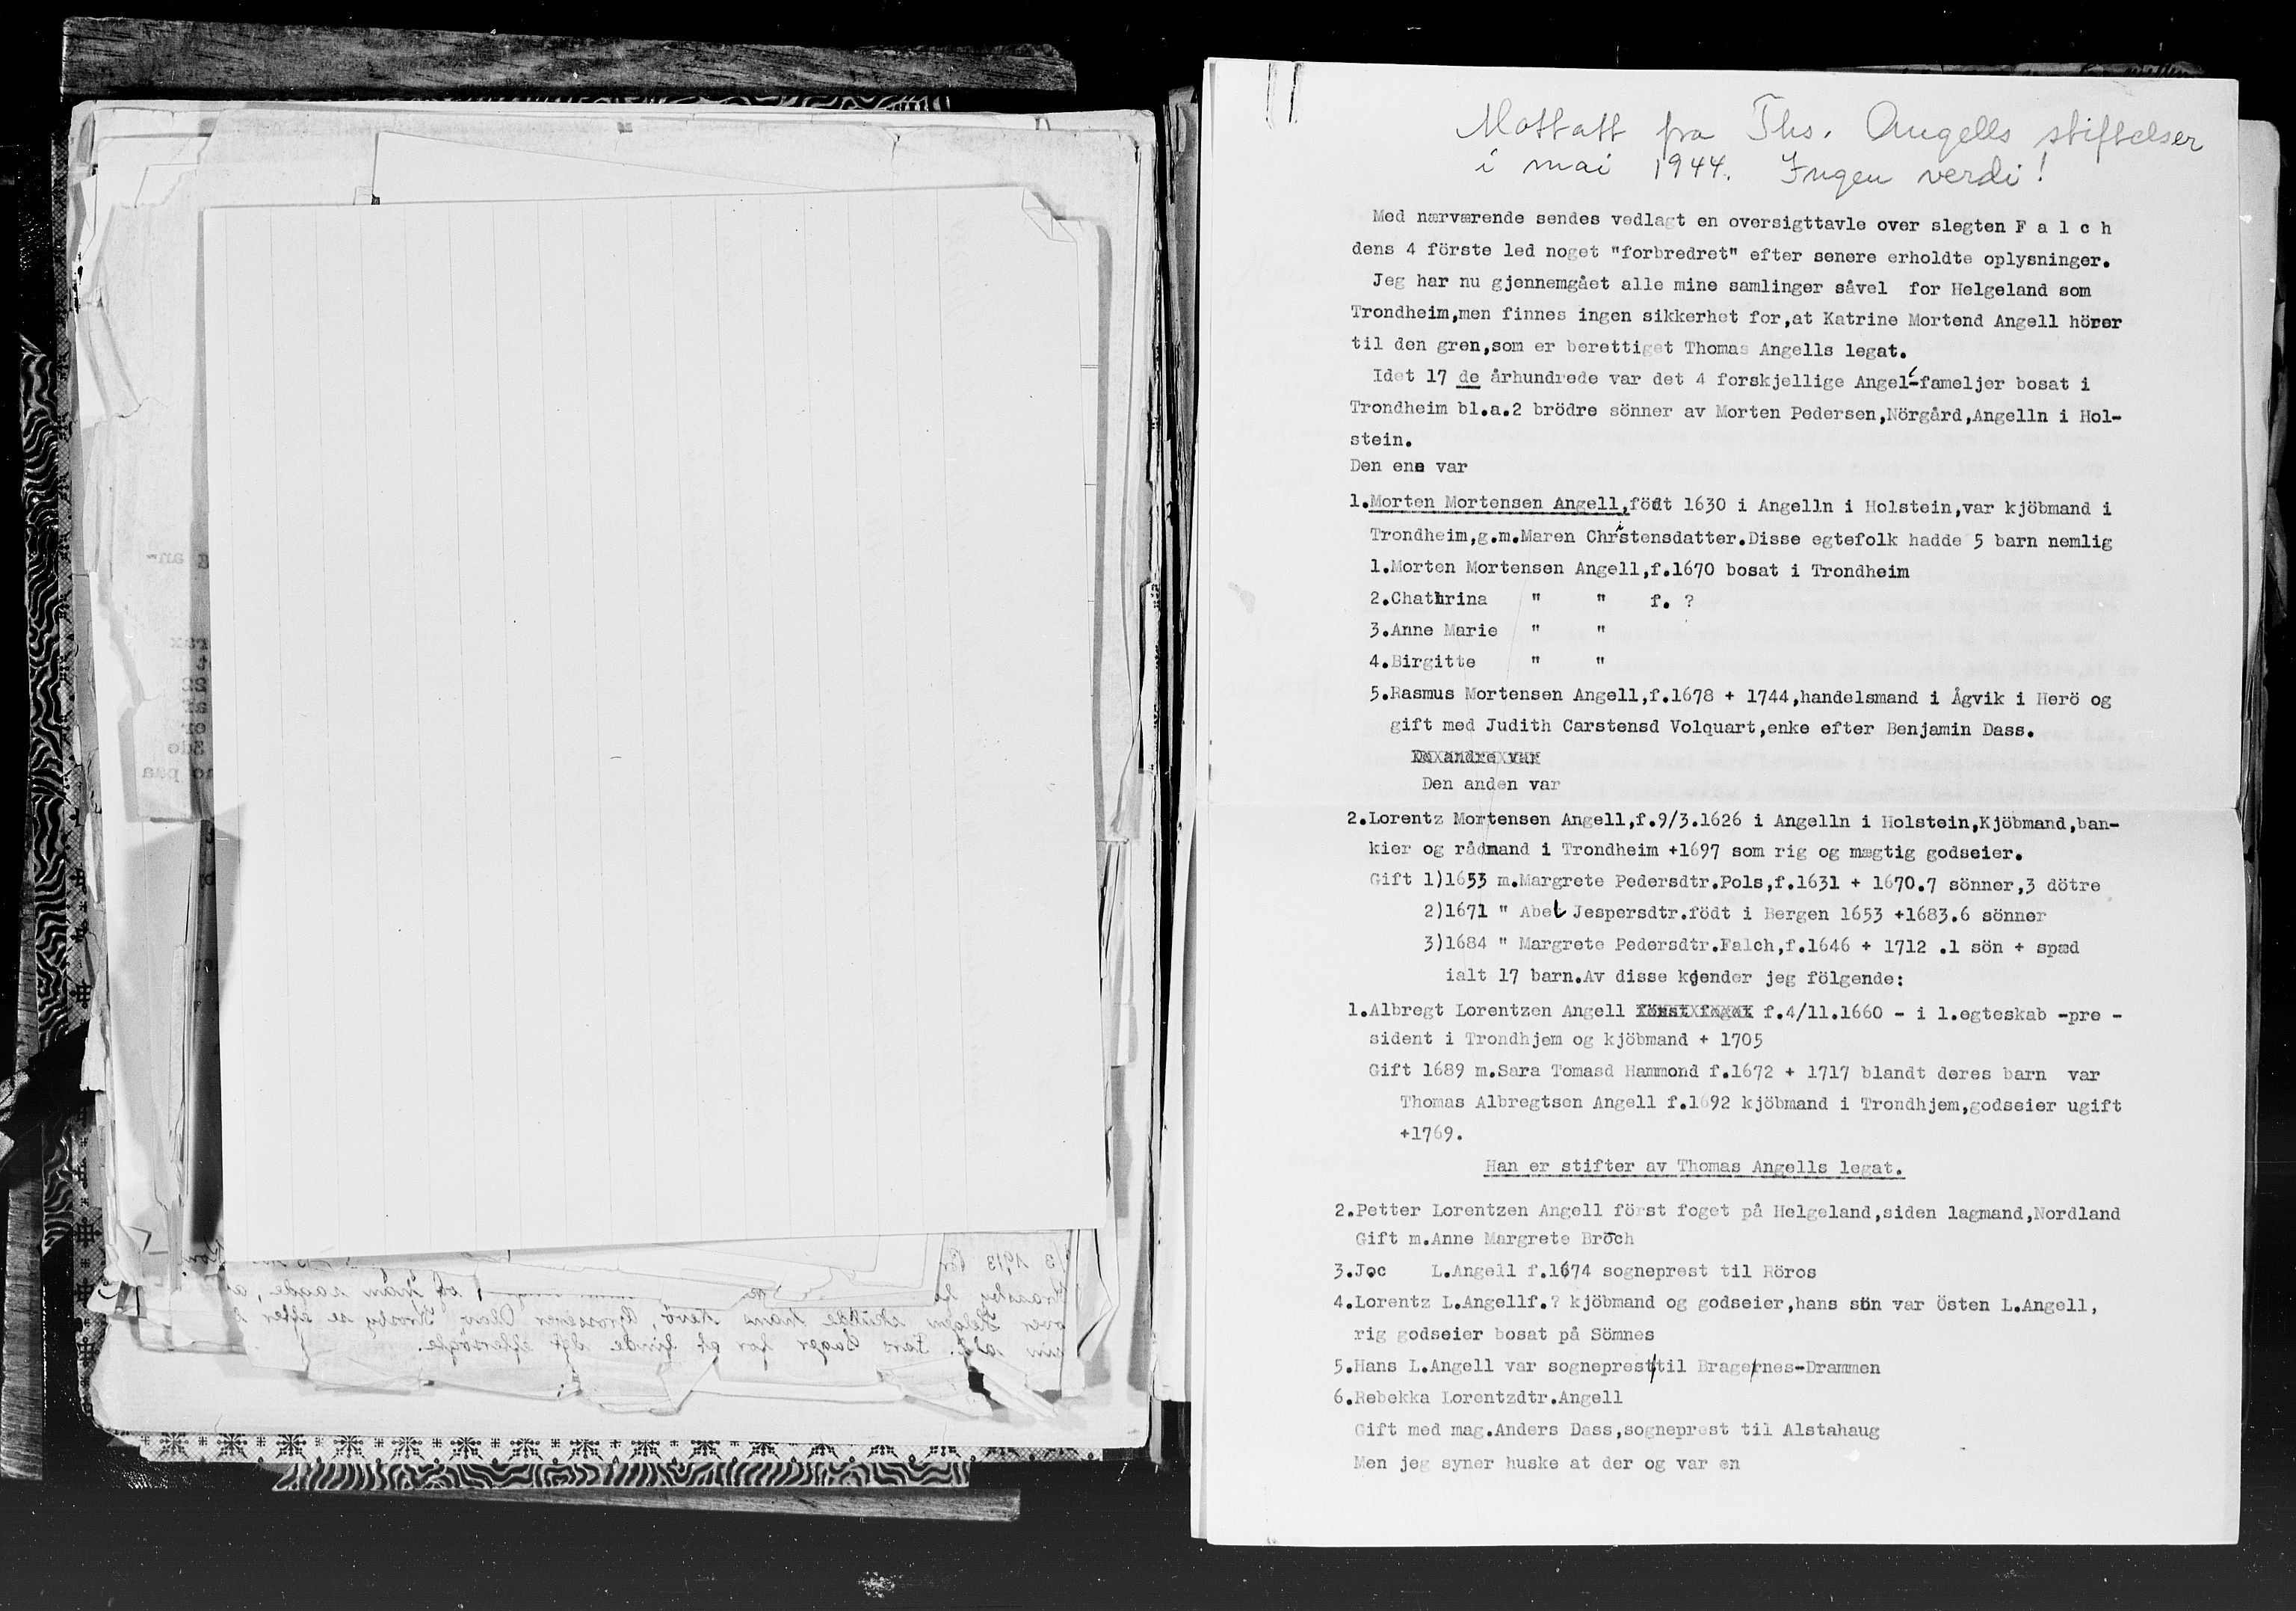 Mottatt fra Ths. Angells stiftelser
i mai 1944. Ingen verdi!
Med nærværende sendes vedlagt en oversigttavle over slegten F a l c h
dens 4 förste led noget "forbredret" efter senere erholdte oplysninger.
Jeg har nu gjennemgået alle mine samlinger såvel for Helgeland som
Trondheim,men finnes ingen sikkerhet for,at Katrine Mortend Angell hörer
til den gren,som er berettiget Thomas Angells legat.
Idet 17 de århundrede var det 4 forskjellige Angel-fameljer bosat i
Trondheim bl.a.2 brödre sönner av Morten Pedersen,Nörgård,Angelln i Hol-
stein.
Den ene var
1.Morten Mortensen Angell,födt 1630 i Angelln i Holstein,var kjöbmand i
Trondheim,g.m.Maren Christensdatter.Disse egtefolk hadde 5 barn nemlig
1.Morten Mortensen Angell,f.1670 bosat i Trondheim
2.Chathrina " " f. ?
3.Anne Marie " "
4.Birgitte " "
5.Rasmus Mortensen Angell,f.1678 + 1744,handelsmand i Ågvik i Herö og
gift med Judith Carstensd Volquart,enke efter Benjamin Dass.
De andre var
Den anden var
2.Lorentz Mortensen Angell,f.9/3.1626 i Angelln i Holstein,Kjöbmand,ban-
kier og rådmand i Trondheim +1697 som rig og mægtig godseier.
Gift 1)1653 m.Margrete Pedersdtr.Pols,f.1631 + 1670.7 sönner,3 dötre
2)1671 " Abel Jespersdtr.födt i Bergen 1653 +1683.6 sönner
3)1684 " Margrete Pedersdtr.Falch,f.1646 + 1712 .1 sön + spæd
ialt 17 barn.Av disse kjender jeg fölgende:
1.Albregt Lorentzen Angell först foget f.4/11.1660 - i 1.egteskab -pre -
sident i Trondhjem og kjöbmand + 1705
Gift 1689 m.Sara Tomasd Hammond f.1672 + 1717 blandt deres barn var
Thomas Albregtsen Angell f.1692 kjöbmand i Trondhjem,godseier ugift
+1769.
Han er stifter av Thomas Angells legat.
2.Petter Lorentzen Angell först foget på Helgeland,siden lagmand,Nordland
Gift m.Anne Margrete Broch
3.Joc L.Angell f.1674 sogneprest til Röros
4.Lorentz L.Angellf.? kjöbmand og godseier,hans sön var Östen L.Angell,
rig godseier bosat på Sömnes
5.Hans L.Angell var sogneprest til Bragernes-Drammen
6.Rebekka Lorentzdtr.Angell
Gift med mag.Anders Dass,sogneprest til Alstahaug
Men jeg syner huske at der og var en